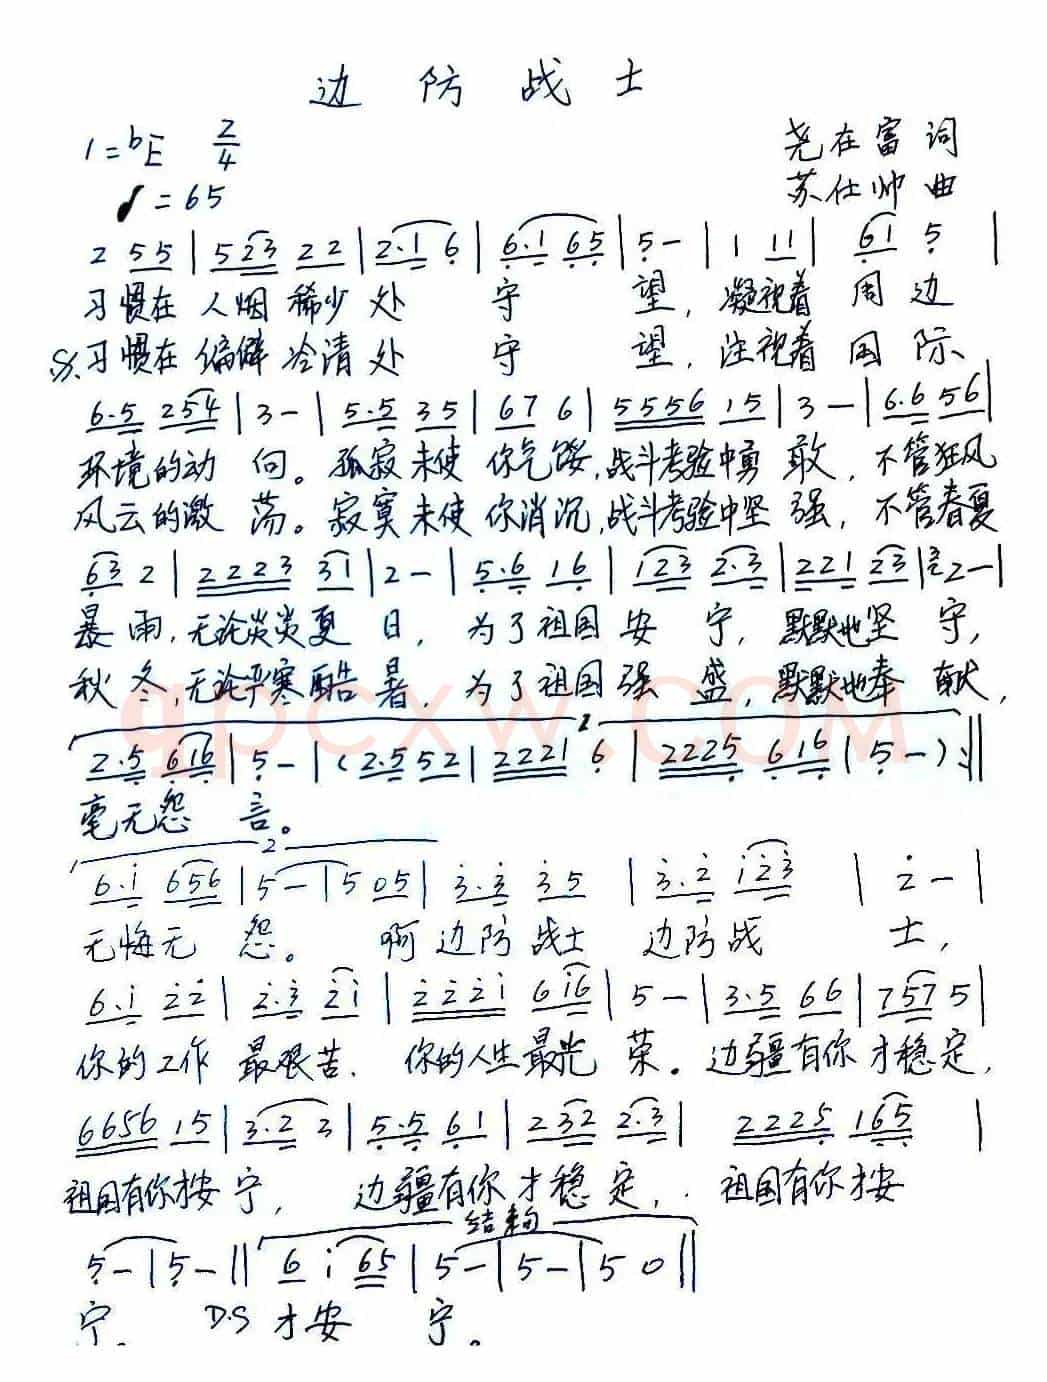 边防战士
1=bE 2/4
尧在富词
♩=65
苏仕帅曲
2 55 | 523 22 | 2·1 6 | 6·1 65 | 5 - | 1 11 | 61 5 |
习惯在人烟稀少处守望，凝视着周边
习惯在偏僻冷清处守望，注视着国际、
6·5 254 | 3 - | 5·5 35 | 67 6 | 5556 15 | 3 - | 6·6 56 |
环境的动向。孤寂未使你气馁，战斗考验中勇敢，不管狂风
风云的激荡。寂寞未使你消沉，战斗考验中坚强，不管春夏
63 2 | 2223 31 | 2 - | 5·6 16 | 123 2·3 | 221 23 | 32 - |
暴雨，无论炎炎夏日，为了祖国安宁，默默地坚守，
秋冬，无论严寒酷暑，为了祖国强盛，默默地奉献，
qpcxw.com
1
2·5 616 | 5 - | (2·5 52 | 2221 6 | 2225 616 | 5 -) :||
毫无怨言。
2
6·1 656 | 5 - | 5 05 | 3·3 35 | 3·2 123 | 2 - |
无悔无怨。啊边防战士边防战士，
6·1 22 | 2·3 21 | 2221 616 | 5 - | 3·5 66 | 757 5 |
你的工作最艰苦．你的人生最光荣。边疆有你才稳定，
6656 15 | 3·2 3 | 5·5 61 | 232 2·3 | 2225 165 |
祖国有你才安宁，边疆有你才稳定，祖国有你才安
结构
5 - | 5 - || 6 1 65 | 5 - | 5 - | 5 0 ||
宁。D.S才安宁。